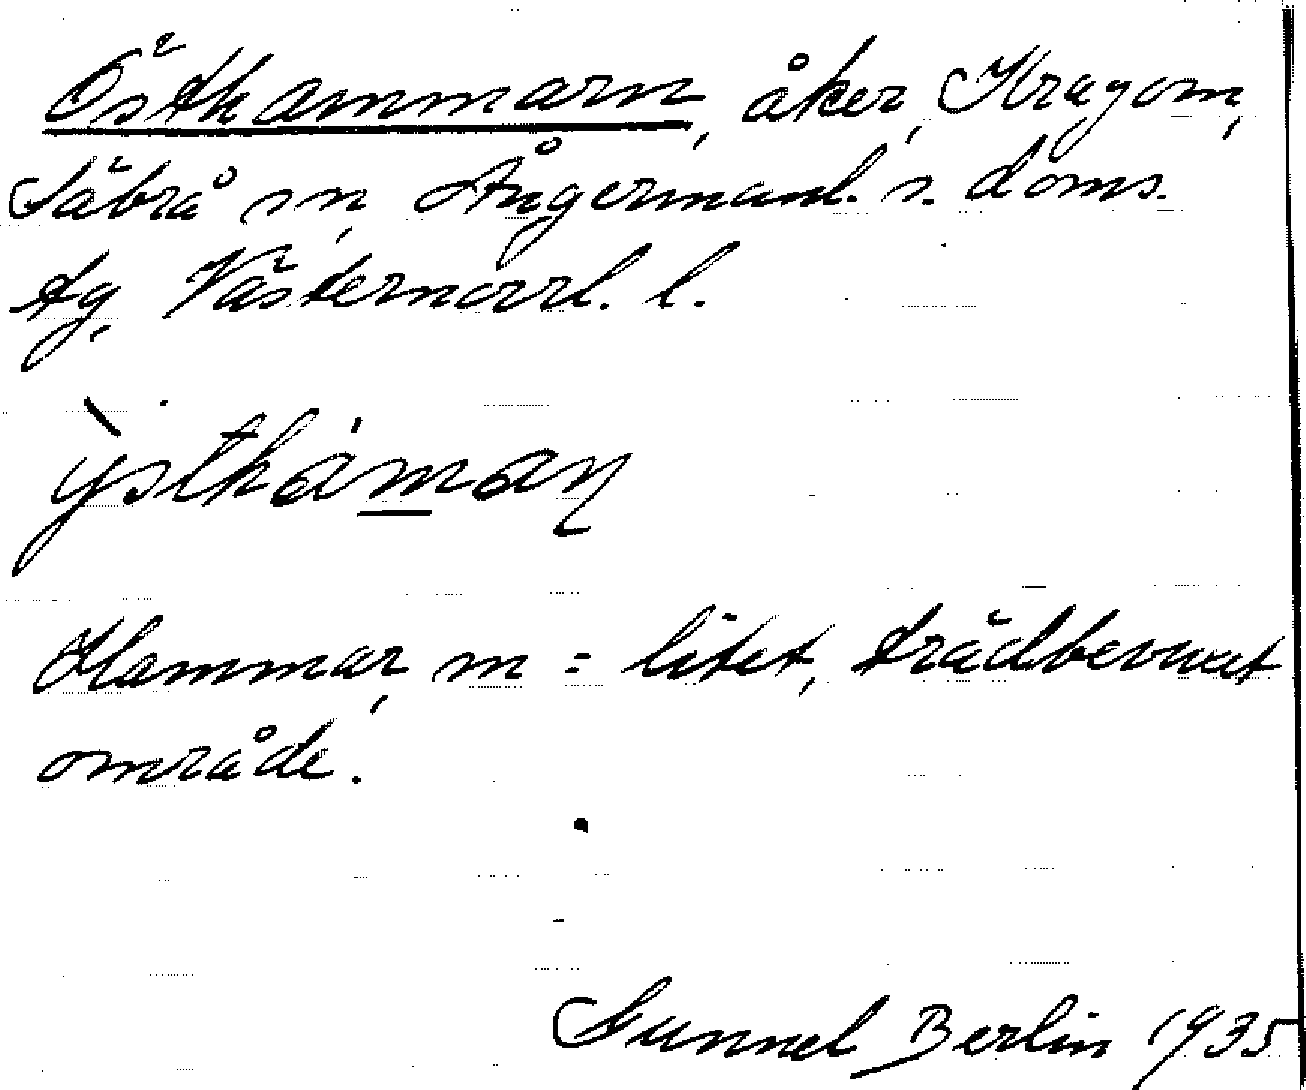 Östhammarn, åker, Kragom,
Säbrå sn, Ångermanl. s. doms.
tg, Västernorrl. l.
ỳsthámaṇ
Hammar, m = litet, trädbevuxet
område.
Gunnel Berlin 1935